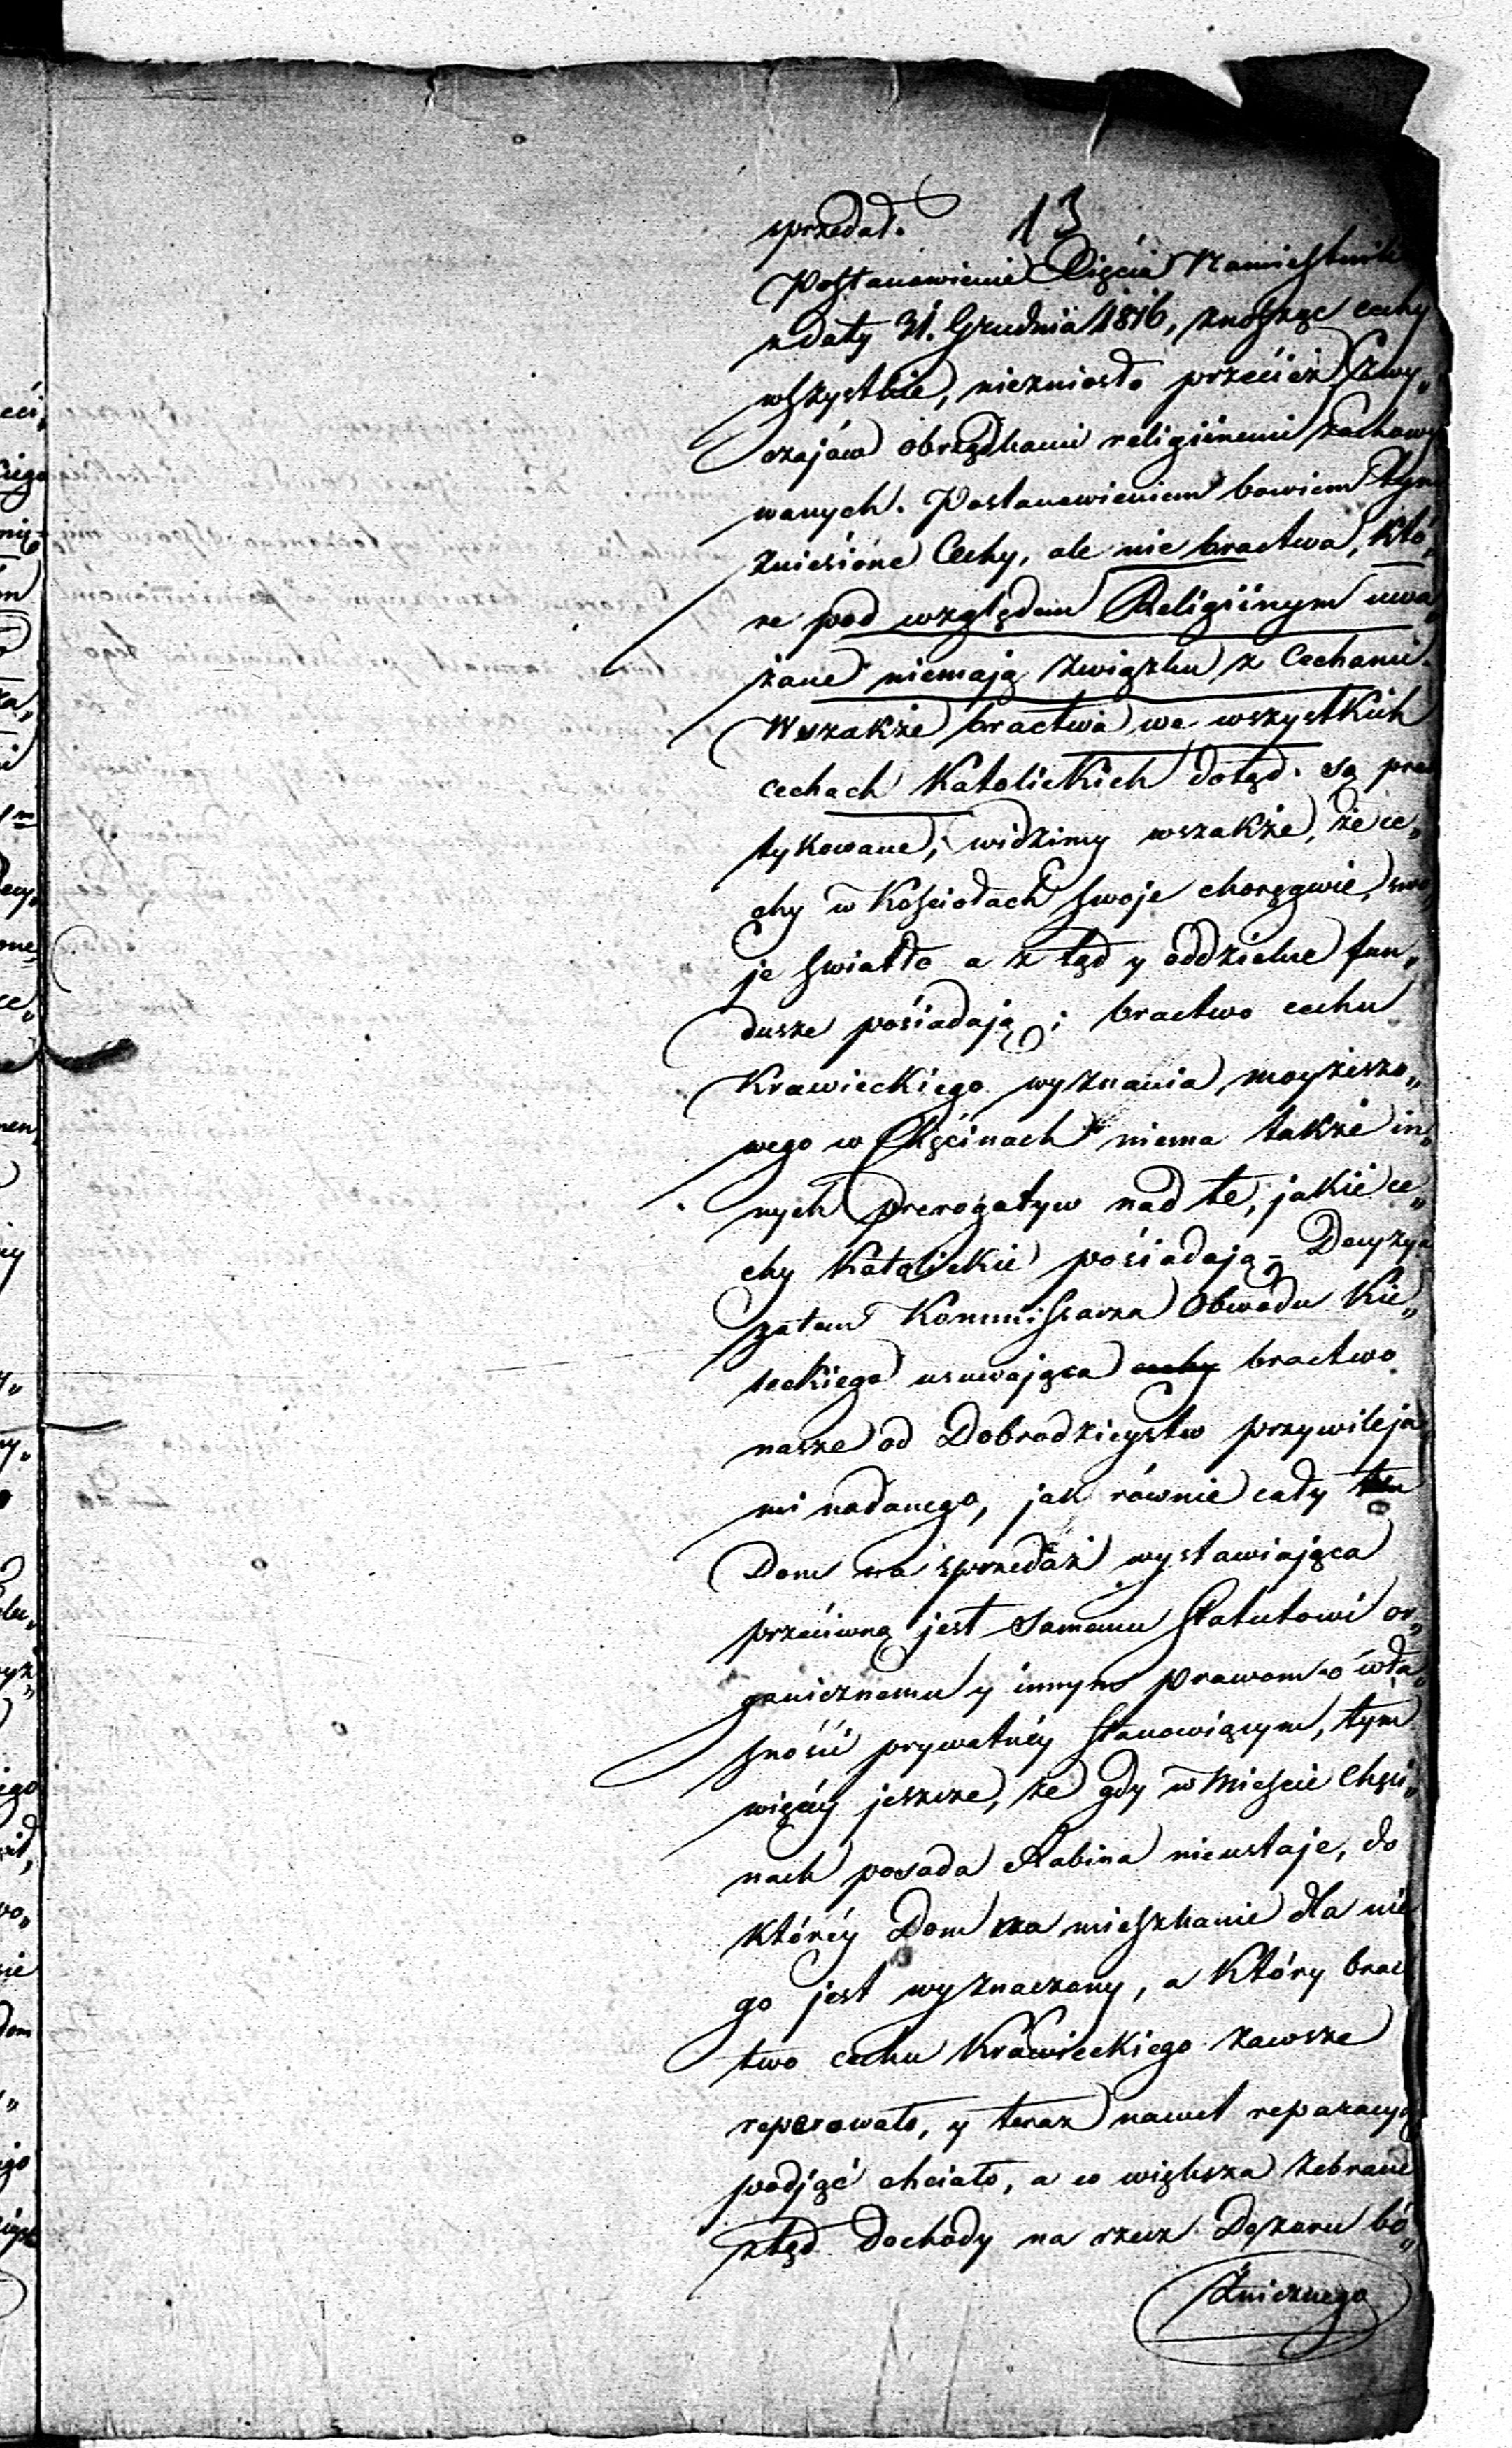 sprzedał. 13
Postanowienie Xięcia Namiestnik
z daty 31. Grudnia 1816, znosząc cechy
wszystkie, niezniosło przecież zwy„
czajów obrządkami religiinemi zachowy
wanych. Postanowieniem bowiem tym
zniesione Cechy, ale nie bractwa, Któ„
re pod względem Religiinym uwa„
żane niemają związku z Cechami.
Wszakże bractwa we wszystkich
cechach Katolickich dotąd są prak
tykowane, widzimy wszakże, że ce„
chy w Kościołach swoje chorągwie, swo
je swiatło a z tąd y oddzielne fun„
dusze posiadają; bractwo cechu
Krawieckiego wyznania moyżeszo„
wego w Chęcinach niema także in„
nych prerogatyw nad te, jakie ce„
chy Katolickie posiadają – Decyzya
zatem Kommissarza Obwodu Kie„
leckiego usuwająca cechy bractwo
nasze od Dobrodzieystw przywileja
mi nadanego, jak równie cały ten
Dom na sprzedaż wystawiająca
przeciwną jest samemu Statutowi or„
ganicznemu y innym prawom o wła„
sności prywatnéy stanowiącym, tym
więcéy jeszcze, że gdy w Mieście Chęci„
nach posada Rabina nieustaje, do
któréy Dom na mieszkanie dla nie
go jest wyznaczony, a Który brac
two cechu Krawieckiego zawsze
reperowało, y teraz nawet reparacyą
podjąć chciało, a co większa zebrane
ztąd dochody na rzecz Dozoru bó„
żnicznego